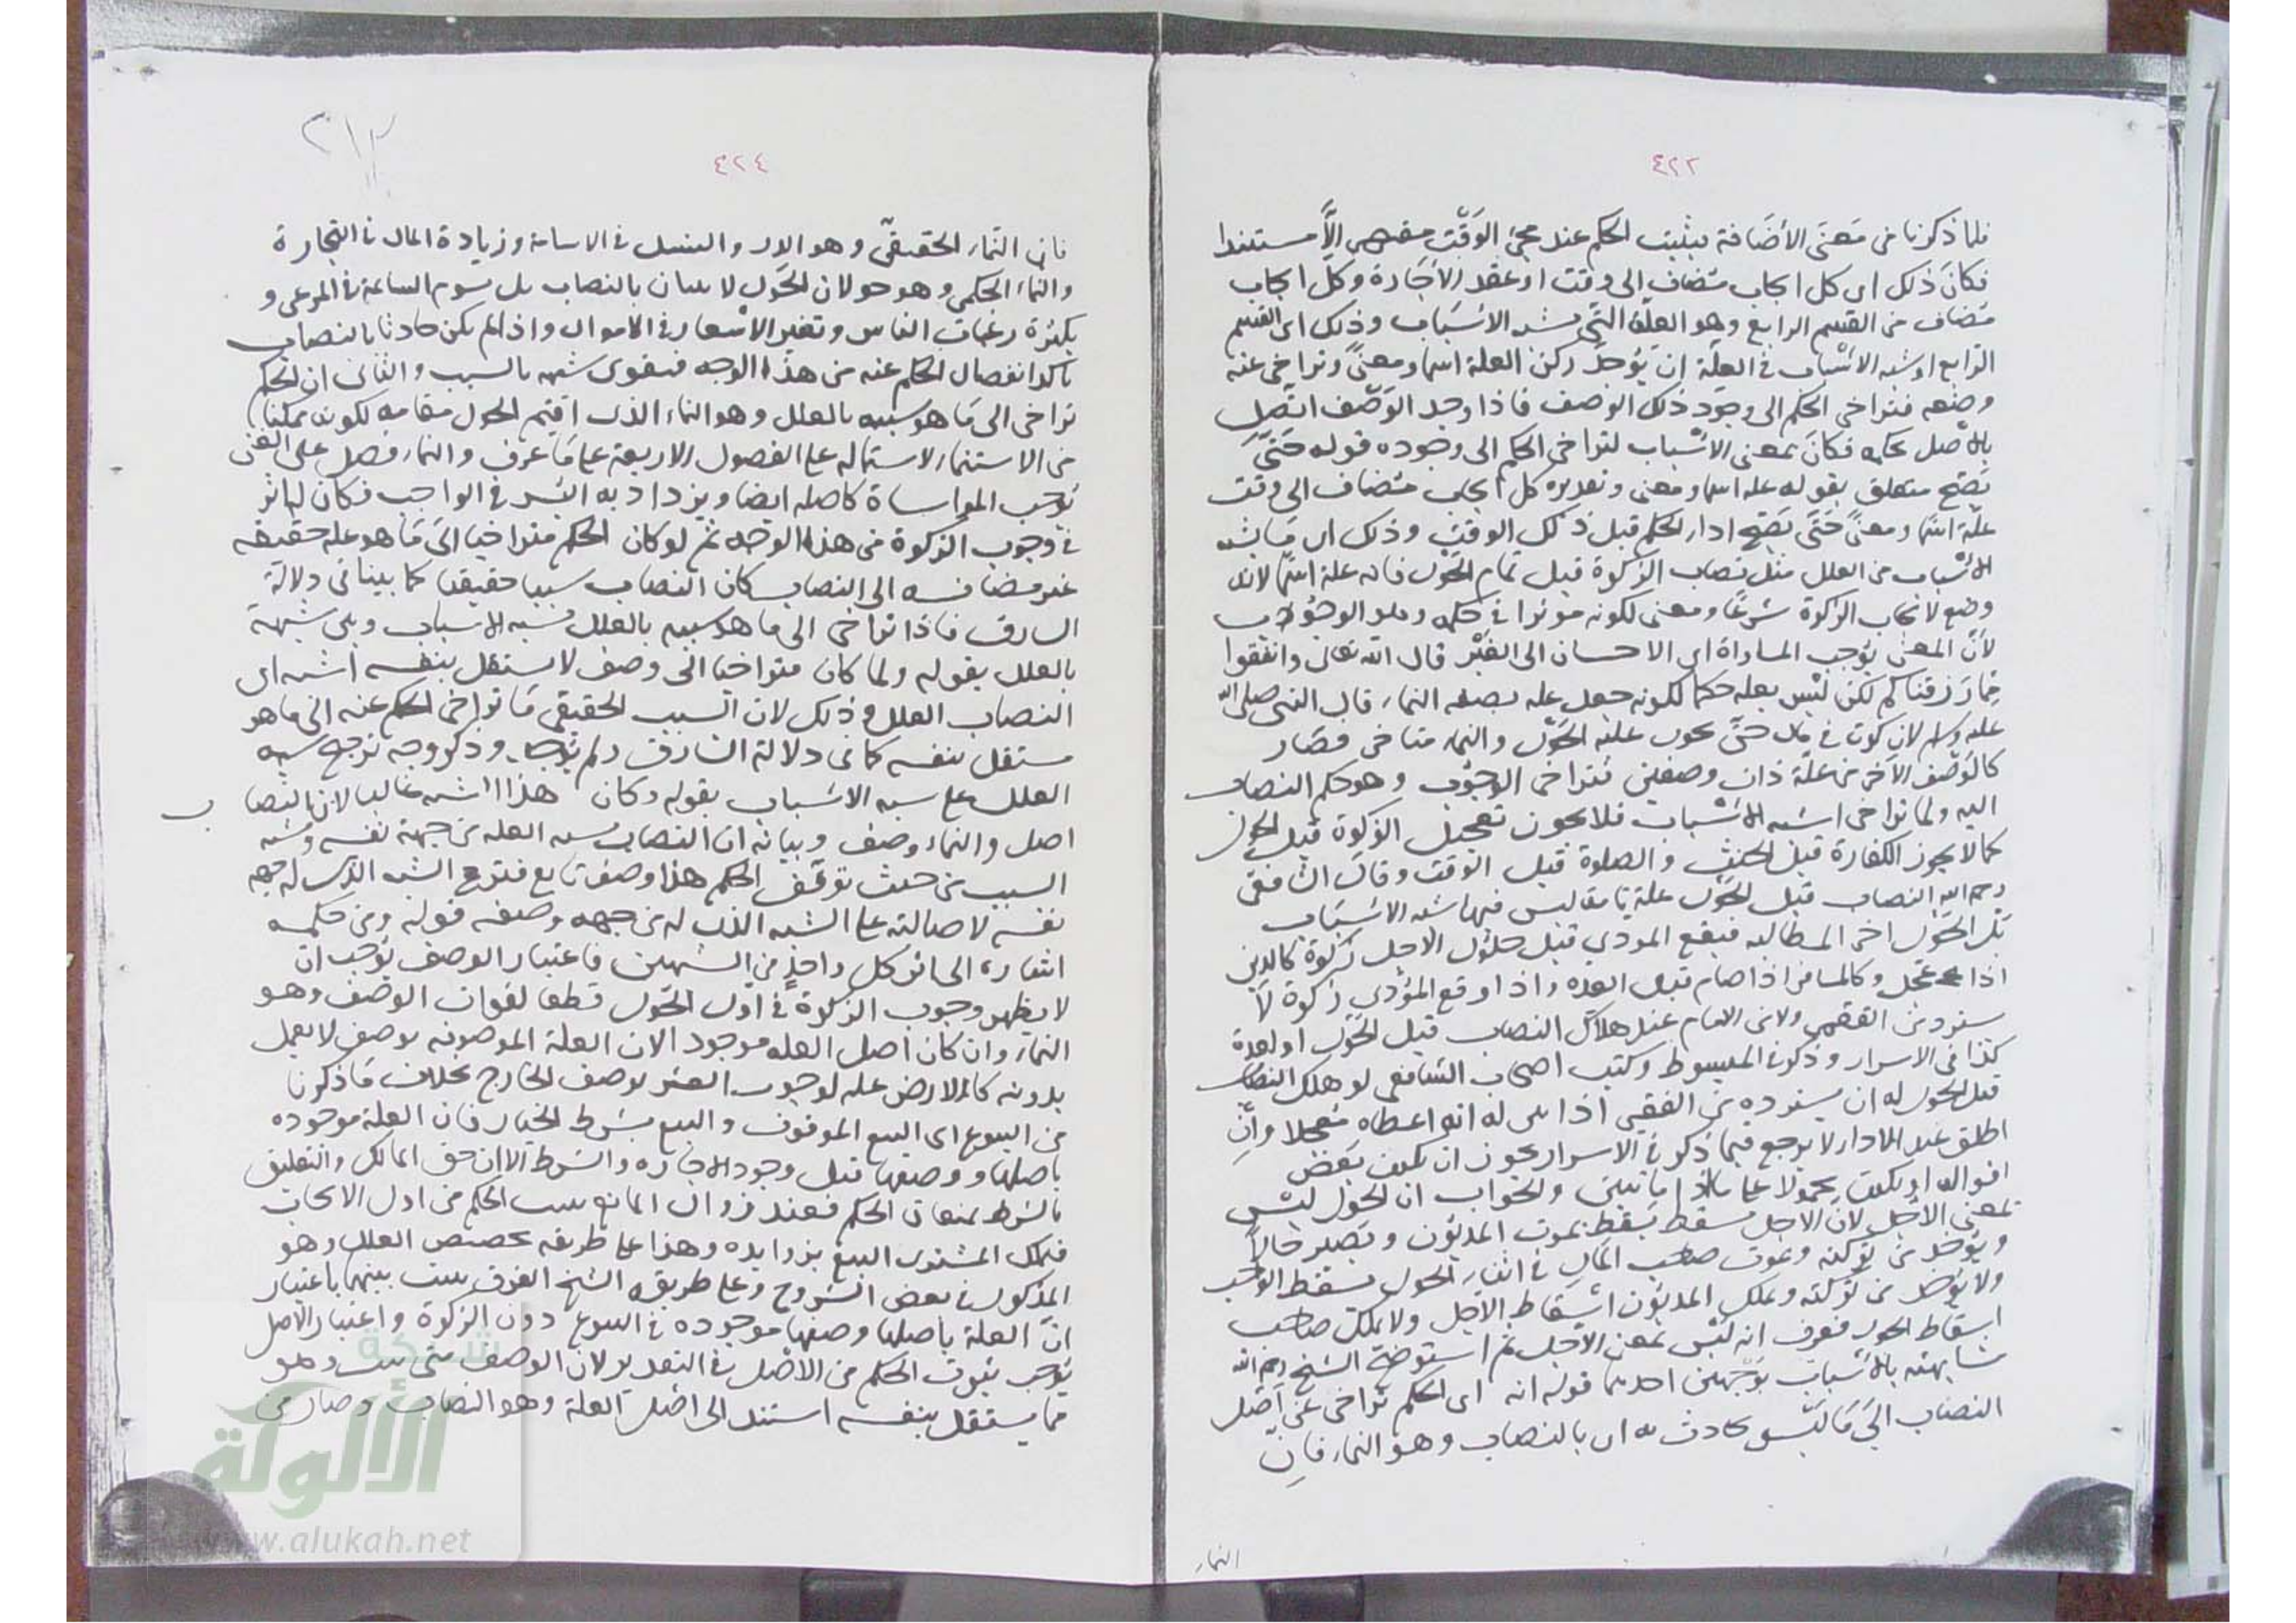 ٤٢٢
فلما ذكرنا من معنى الأضافة يثبت الحكم عند مجئ الوقت مقتصرا لا مستندا
فكان ذلك اى كل ايجاب مضاف الى وقت او عقد الأجارة وكل ايجاب
مضاف من القسم الرابع وهو العلة التى تشبه الاسباب وذلك اى القسم
الرابع او شبه الاسباب فى العلة ان يوجد ركن العلة اسما ومعنى وتراخى عنه
وصفه فتراخى الحكم الى وجود ذلك الوصف فاذا وجد الوصف اتصل
بالاصل بحكمه فكان بمعنى الاسباب لتراخى الحكم الى وجوده قوله حتى
يصح متعلق بقوله علة اسما ومعنى وتقديره كل ايجاب مضاف الى وقت
علة اسما ومعنى حتى يصح اداء الحكم قبل ذلك الوقت وذلك اى ما يشبه
الاسباب من العلل مثل نصاب الزكوة قبل تمام الحول فانه علة اسما لانه
وضع لايجاب الزكوة شرعا ومعنى لكونه موثرا فى حكمه وهو الوجوب
لأن المعنى يوجب المساواة اى الاحسان الى الفقير قال الله تعالى وانفقوا
مما رزقناكم لكن ليس بعلة حكما لكونه جعل علة بصفة النماء قال النبى صلى الله
عليه وسلم لا زكوة فى مال حتى يحول عليه الحول والنماء متراخى فصار
كالوصف الآخر من علة ذات وصفين فتراخى الوجوب وهو حكم النصاب
اليه ولما تراخى اشبه الاسباب فلا يجوز تعجيل الزكوة قبل الحول
كما لا يجوز الكفارة قبل الحنث والصلوة قبل الوقت وقال الشافعى
رحمه الله النصاب قبل الحول علة تامة ليس فيها شبه الاسباب
بل الحول اخر المطالبة فيقع المودى قبل حلول الاجل زكوة كالدين
اذا عجل وكالمسافر اذا صام قبل العدة واذا وقع المؤدى زكوة لا
يسترد من الفقير ولا من الامام عند هلاك النصاب قبل الحول او بعده
كذا فى الاسرار وذكر فى المبسوط وكتب اصحاب الشافعى لو هلك النصاب
قبل الحول له ان يسترده من الفقير اذا بين له انه اعطاه معجلا وان
اطلق عند الاداء لا يرجع فيما ذكر فى الاسرار يجوز ان يكون بعض
اقواله او يكون محمولا على ما اذا ما تبين والجواب ان الحول ليس
بمعنى الاجل لان الاجل يسقط بموت المديون ويصير حالا
ويؤخذ من تركته وبموت صاحب المال فى اثناء الحول يسقط الواجب
ولا يؤخذ من تركته ويملك المديون اسقاط الاجل ولا يملك صاحب
اسقاط الحول فعرف انه ليس بمعنى الاجل ثم استوضح الشيخ رحمه الله
مشابهته بالاسباب بوجهين احدهما قوله انه اى الحكم تراخى عن اصل
النصاب الى ما ليس بحادث به اى بالنصاب وهو النماء فان
النماء
٢١٣
٤٢٤
فان النماء الحقيقى وهو الدر والنسل فى الاسامة وزيادة المال فى التجارة
والنماء الحكمى وهو حولان الحول لا يبان بالنصاب بل بسوم السائمة فى المرعى و
بكثرة رغبات الناس وتغير الاسعار فى الاموال واذا لم يكن حادثا بالنصاب
تاكد انفصال الحكم عنه من هذا الوجه فيقوى شبهه بالسبب والثانى ان الحكم
تراخى الى ما هو شبيه بالعلل وهو النماء الذى اقيم الحول مقامه لكونه ممكنا
من الاستنماء لاشتماله على الفصول الاربعة على ما عرف والنماء فضل على الغنى
يوجب المواساة كاصله ايضا ويزداد به اليسر فى الواجب فكان له اثر
فى وجوب الزكوة من هذا الوجه ثم لو كان الحكم متراخيا الى ما هو علة حقيقة
غير مضافة الى النصاب كان النصاب سببا حقيقيا كما بينا فى دلالة
السارق فاذا تراخى الى ما هو شبيه بالعلل شبه الاسباب وبين شبهه
بالعلل بقوله ولما كان متراخيا الى وصف لا يستقل بنفسه اشبه اى
النصاب العلل وذلك لان السبب الحقيقى ما تراخى الحكم عنه الى ما هو
مستقل بنفسه كما فى دلالة السارق ولم يوجد وذكر وجه ترجح شبه
العلل على شبه الاسباب بقوله وكان هذا الشبه غالبا لان النصاب
اصل والنماء وصف وبيانه ان النصاب يشبه العلة من جهة نفسه ويشبه
السبب من حيث توقف الحكم هذا وصف تابع فترجح الشبه الذى له جهة
نفسه لاصالته على الشبه الذى له من جهة وصفه قوله ومن حكمه
اشارة الى اثر كل واحد من الشبهين فاعتبار الوصف يوجب ان
لا يظهر وجوب الزكوة فى اول الحول قطعا لفوات الوصف وهو
النماء وان كان اصل العلة موجودا لان العلة الموصوفة بوصف لا يعمل
بدونه كالارض علة لوجوب العشر بوصف الخارج بخلاف ما ذكرنا
من البيوع اى البيع الموقوف والبيع بشرط الخيار فان العلة موجودة
باصلها ووصفها قبل وجود الاجازة والشرط الا ان حق المالك والتعليق
بالشرط يمنعان الحكم فعند زوال المانع يثبت الحكم من اول الايجاب
فيملك المشترى المبيع بزوايده وهذا على طريقة تخصيص العلل وهو
المذكور فى بعض الشروح وعلى طريقة الشيخ الفرق يثبت بينهما باعتبار
ان العلة باصلها وصفها موجودة فى البيوع دون الزكوة واعتبار الاصل
يوجب ثبوت الحكم من الاصل فى التقدير لان الوصف متى يثبت وهو
مما يستقل بنفسه استند الى اصل العلة وهو النصاب وصار من
شبكة
الألوكة
www.alukah.net